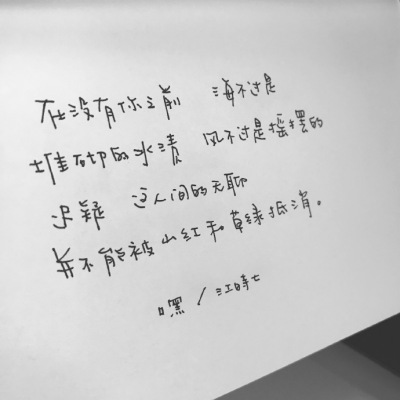 在没有你之前 海不过是
堆砌的水渍 风不过是摇摆的
迟疑 这人间的无聊
并不能被山红和草绿抵消。
嘿／江时七